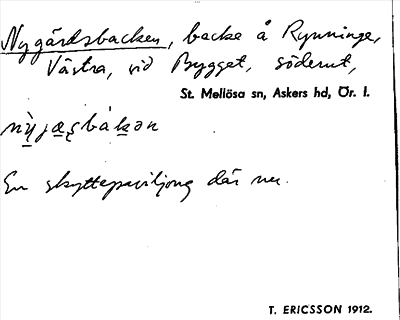 Nygårdsbacken, backe å Rynninge,
Västra, vid Bygget, söderut,
St. Mellösa sn, Askers hd, Ör. l.
En skyttepaviljong där nu.
T. ERICSSON 1912.